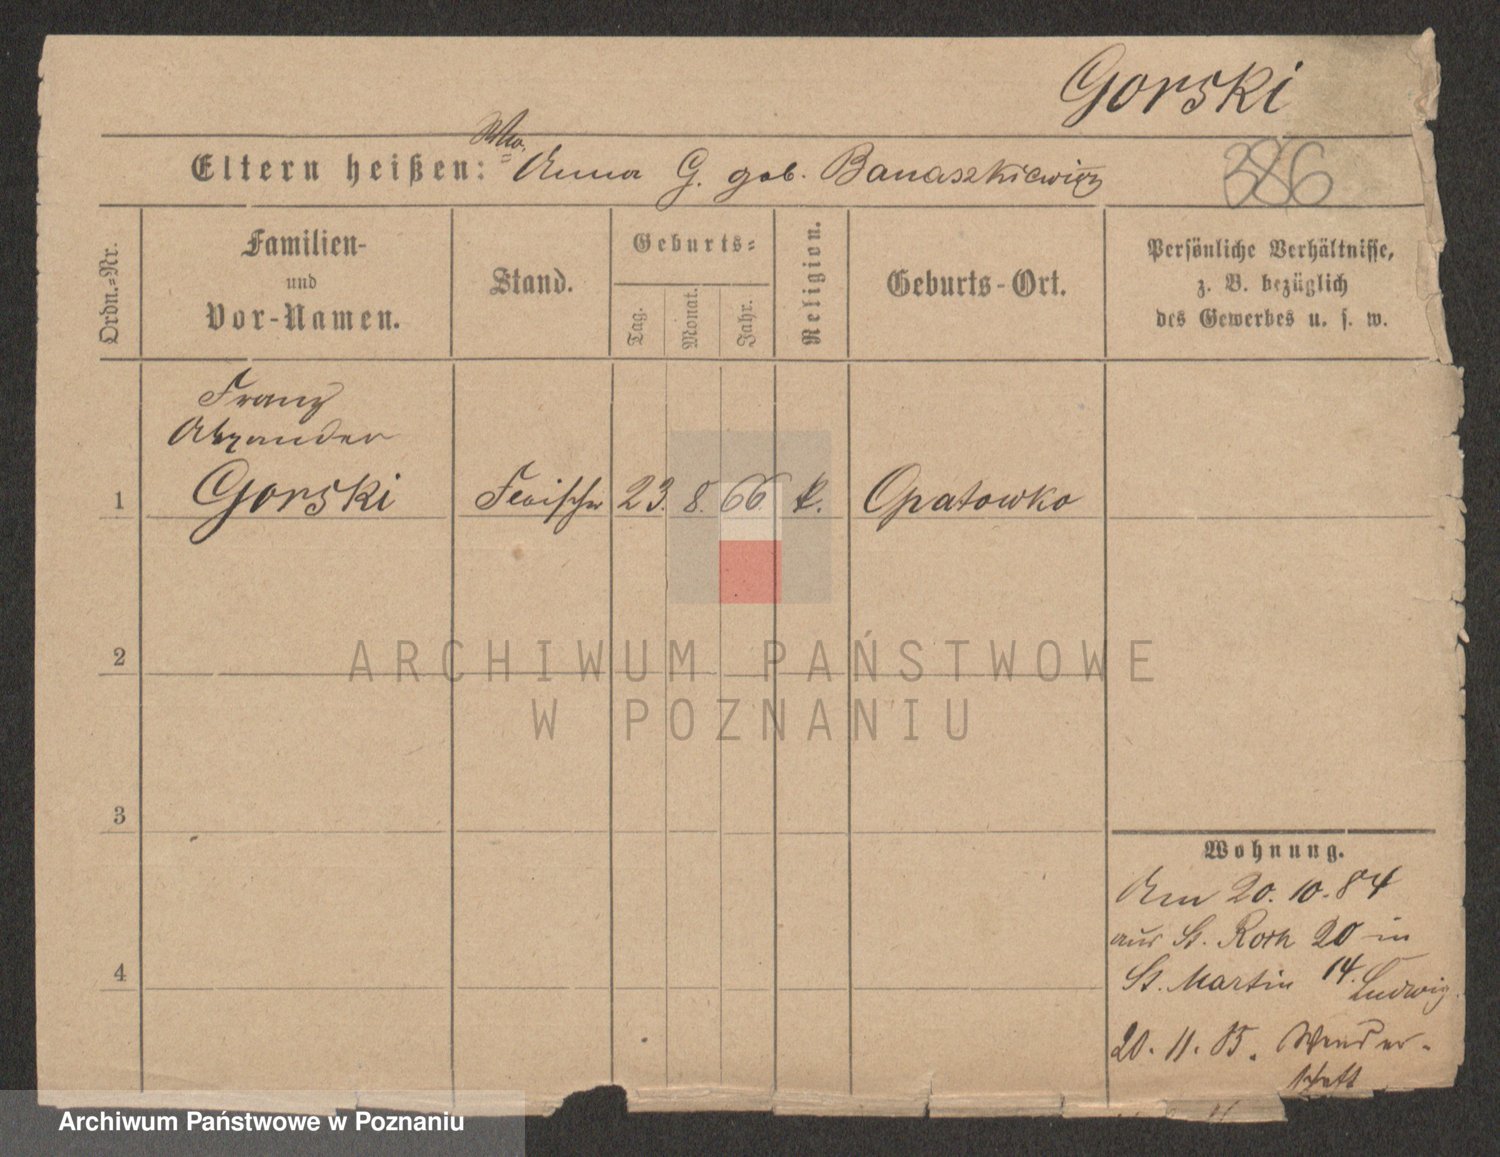 Gorski
Eltern heißen: Wwe. Anna G. geb. Banaszkiewicz
386
Ordn.=Nr.
Familien-
und
Vor-Namen.
Stand.
Geburts=
Tag.
Monat.
Jahr.
Religion.
Geburts-Ort.
Persönliche Verhältnisse,
z. B. bezüglich
des Gewerbes u. s. w.
Franz
Alexander
1 Gorski Fleischer 23. 8. 66. k. Opatowko
2
3
4
ARCHIWUM PAŃSTWOWE
W POZNANIU
Wohnung.
Am 20. 10. 84
aus St. Roch 20 in
St. Martin 14. Ludwig
20. 11. 85. Wander-
schaft
Archiwum Państwowe w Poznaniu